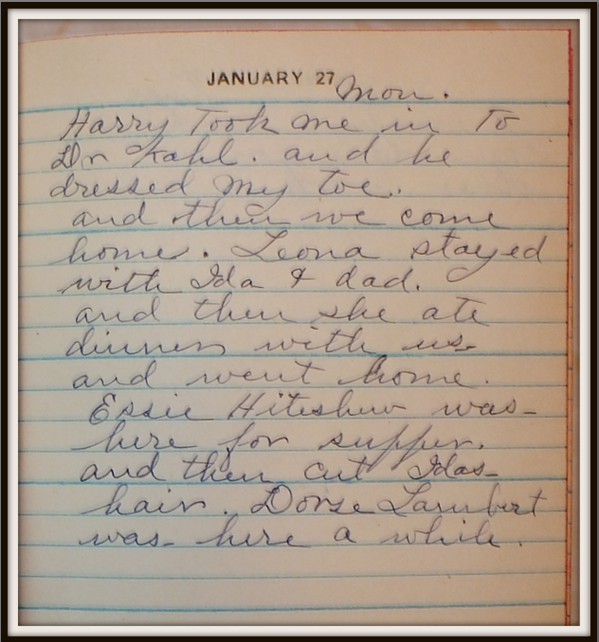 JANUARY 27 Mon.
Harry Took me in To
Dr Kahl. and he
dressed my toe.
and then we come
home. Leona stayed
with Ida & dad.
and then she ate
dinner with us
and went home.
Essie Hiteshew was
here for supper.
and then cut Idas
hair. Dorse Lambert
was here a while.